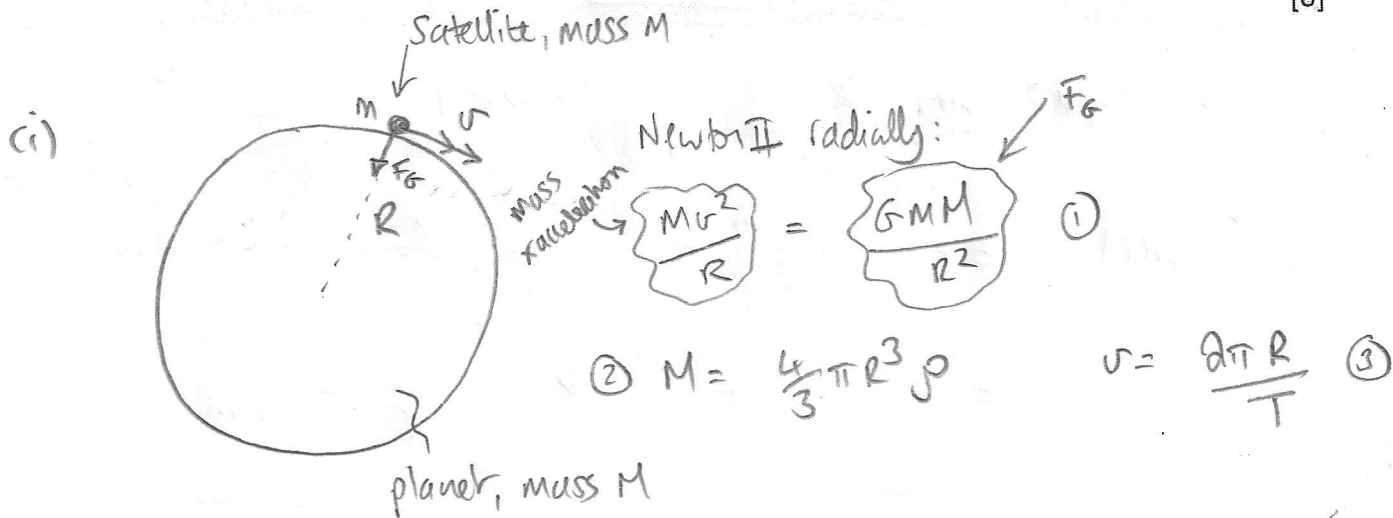 [6]
Satellite, mass M
(i)
m
v
F_G
R
Newton II radially:
F_G
mass
x acceleration
Mv²/R = GMM/R² ①
② M = 4/3 πR³ρ
v = 2πR/T ③
planet, mass M